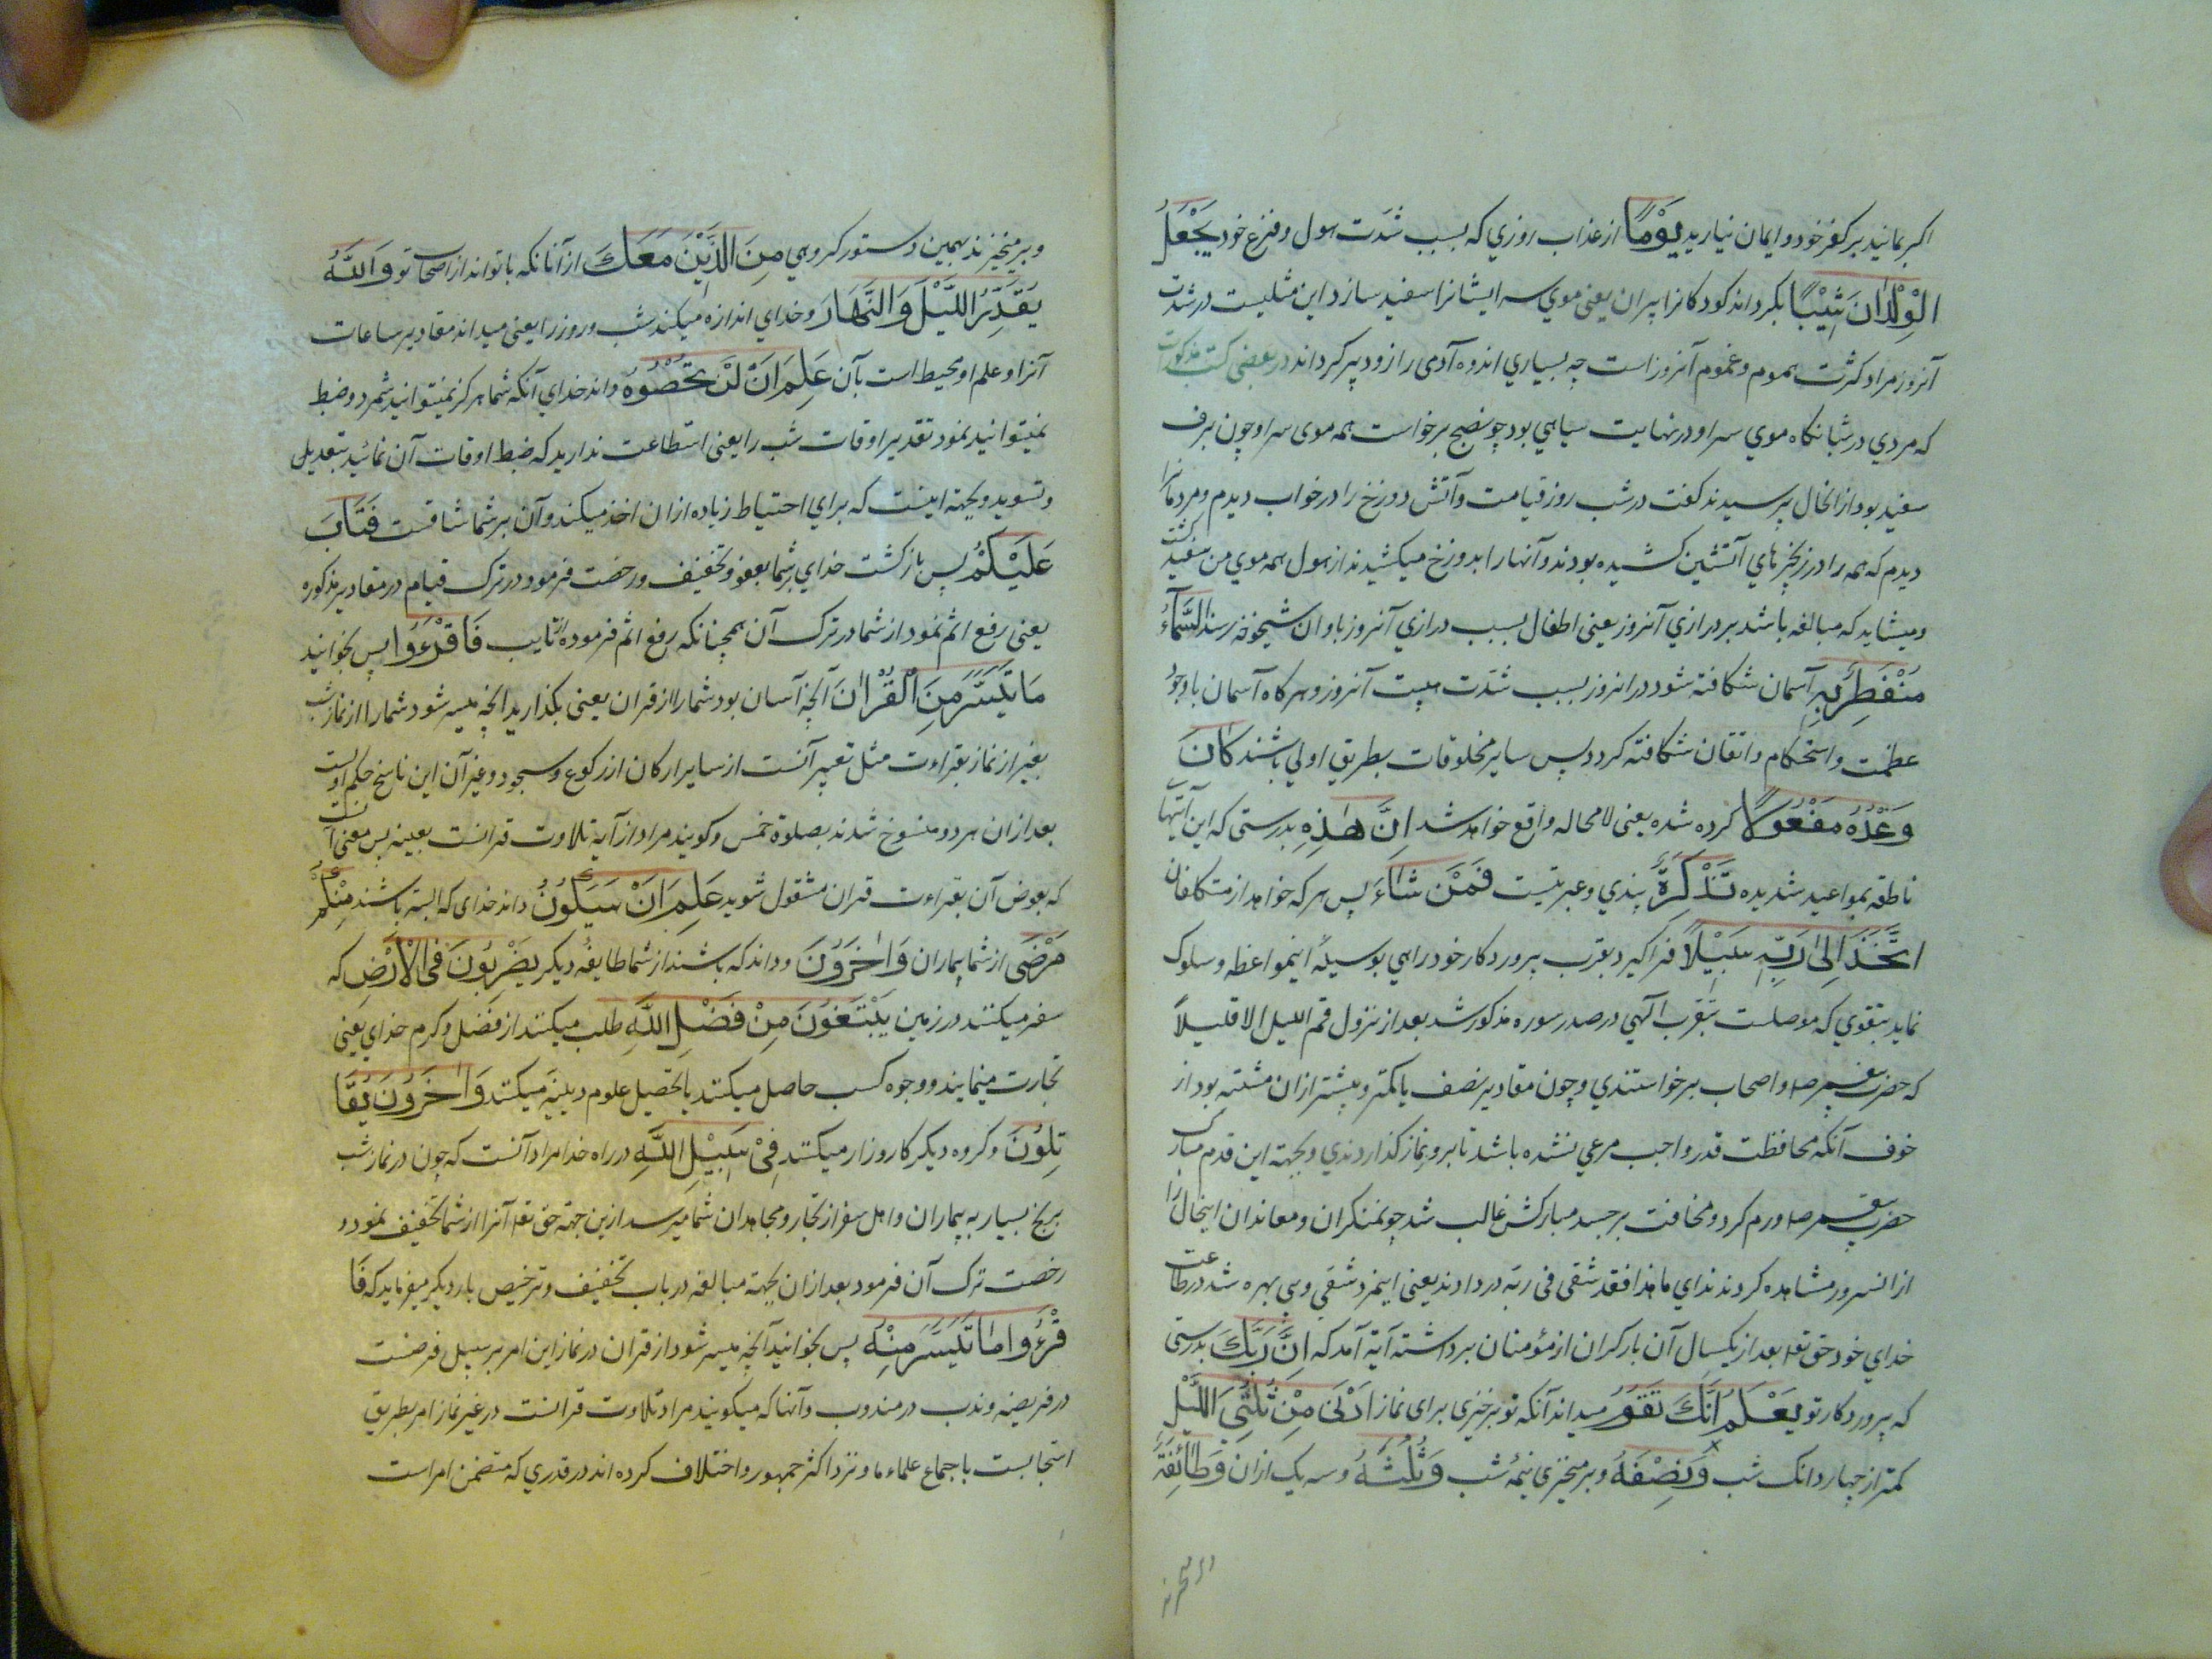 اکر بمانید بر کفر خود و ایمان نیارید یَوْمًا از عذاب روزي که بسبب شدّت هول و فزع خود یَجْعَلُ
الْوِلْدٰانَ شِیْبًا بکرداند کودکانرا پیران یعنی موي سر ایشانرا سفید سازد این مثلیست در شدّت
آنروز مراد کثرت هموم و غموم آنروز است چه بسیاري اندوه آدمی را زود پیر کرداند در بعضی کتب مذکورات
که مردي در شبانکاه موي سر او در نهایت سیاهي بود چو بصبح برخواست همه موی سر او چون برف
سفید بود از انحال پرسیدند کفت در شب روز قیامت و آتش دوزخ را در خواب دیدم و مردمانرا
دیدم که همه را در زنجیرهاي آتشین کشیده بودند و آنها را بدوزخ میکشیدند از هول همه موي من سفید کشت
و میشاید که مبالغه باشد بر درازي آنروز یعنی اطفال بسبب درازي آنروز باوان شیخوخه رسند السَّمآءُ
مُنْفَطِرٌ بِهِ آسمان شکافته شود در انروز بسبب شدّت هیبت آنروز و هرکاه آسمان باوجود
عظمت و استحکام و اتقان شکافته کردد پس سایر مخلوقات بطریق اولي باشند کٰانَ
وَعْدُهُ مَفْعُوْلًا کرده شده یعنی لامحاله واقع خواهد شد اِنَّ هٰذِهِ بدرستی که این آیتها
ناطقه بمواعید شدیده تَذْکِرَةٌ پندي و عبرتیست فَمَنْ شٰاءَ پس هرکه خواهد از متکلفان
اتَّخَذَ اِلیٰ رَبِّهِ سَبِیْلًا فرا کیرد بقرب پروردکار خود راهي بوسیلهٔ اینمواعظه و سلوک
نماید بتقوي که موصلست بتقرب الهي در صدر سوره مذکور شد بعد از نزول قم اللیل الا قلیلاً
که حضرت پیغمبر صلعم و اصحاب برخواستندي و چون مقادیر نصف یا کمتر و بیشتر ازان مشتبه بود از
خوف آنکه محافظت قدر واجب مرعي نشده باشد تا بروز نماز کذاردندي و بجهته این قدم مبارک
حضرت پیغمبر صلعم ورم کرد و نحافت بر جسد مبارکش غالب شد چو منکران و معاندان اینحال را
از انسرور مشاهده کردند نداي ما هذا فقد شقی فی ربّه در دادند یعنی اینمرد شقي و بی بهره شد در طاعت
خداي خود حق تعالی بعد از یکسال آن بار کران از مؤمنان برداشته آیة آمد که اِنَّ رَبَّکَ بدرستی
که پروردکار تو یَعْلَمُ اَنَّکَ تَقُوْمُ میداند آنکه تو برخیزي برای نماز اَدْنٰی مِنْ ثُلُثَيِ اللَّیْلِ
کمتر از چهار دانک شب وَنِصْفَهُ و برمیخیزی نیمهٔ شب وَثُلُثَهُ و سه یک ازان وَطٰائِفَةٌ
و برمیخیزند بهمین دستور کروهي مِنَ الَّذِیْنَ مَعَکَ از آنانکه با تواند از اصحاب تو وَاللّٰهُ
یُقَدِّرُ اللَّیْلَ وَالنَّهَارَ و خداي اندازه میکند شب و روز را یعنی میداند مقادیر ساعات
آنرا و علم او محیط است بآن عَلِمَ اَنْ لَنْ تُحْصُوْهُ داند خداي آنکه شما هرکز نمیتوانید شمرد و ضبط
نمیتوانید نمود تقدیر اوقات شب را یعنی استطاعت ندارید که ضبط اوقات آن نمائید بتعدیل
و تسوید و بجهته اینست که براي احتیاط زیاده ازان اخذ میکنند و آن بر شما شاقست فَتٰابَ
عَلَیْکُمْ پس بازکشت خداي بر شما بعفو و تخفیف و رخصت فرمود در ترک قیام در مقادیر مذکوره
یعنی رفع اثم نمود از شما در ترک آن همچنانکه رفع اثم فرموده از تایب فَاقْرَءُوا پس بخوانید
مَا تَیَسَّرَ مِنَ الْقُرْاٰنِ آنچه آسان بود شما را از قران یعنی بکذارید انچه میسر شود شما را از نماز شب
بغیر از نماز بقراءت مثل تعبیر آنست از سایر ارکان از رکوع و سجود و غیر آن این ناسخ حکم اولست
بعد ازان هر دو منسوخ شدند بصلوة خمس و کویند مراد از آیة تلاوت قرانست بعینه پس معنی آنست
که بعوض آن بقراءت قران مشغول شوید عَلِمَ اَنْ سَیَکُوْنُ داند خدای که البته باشند مِنْکُمْ
مَرْضٰی از شما بیماران وَاٰخَرُوْنَ و داند که باشند از شما طایفهٔ دیکر یَضْرِبُوْنَ فِی الْاَرْضِ که
سفر میکنند در زمین یَبْتَغُوْنَ مِنْ فَضْلِ اللّٰهِ طلب میکنند از فضل و کرم خداي یعنی
تجارت مینمایند و وجوه کسب حاصل میکنند یا تحصیل علوم دینیّه میکنند وَاٰخَرُوْنَ یُقَا
تِلُوْنَ و کروه دیکر کارزار میکنند فِیْ سَبِیْلِ اللّٰهِ در راه خدا مراد آنست که چون در نماز شب
رنج بسیار به بیماران و اهل سفر از تجار و مجاهدان شما میرسد ازین جهة حق تعالی آنرا از شما تخفیف نمود و
رخصت ترک آن فرمود بعد ازان بجهته مبالغه در باب تخفیف و ترخیص بار دیکر میفرماید که فَا
قْرَءُوا مٰا تَیَسَّرَ مِنْهُ پس بخوانید آنچه میسر شود از قران در نماز این امر بر سبیل فرضست
در فریضه و ندب در مندوب و آنها که میکویند مراد تلاوت قرانست در غیر نماز امر بطریق
استحبابست باجماع علماء ما و نزد اکثر جمهور و اختلاف کرده اند در قدري که متضمن امر است